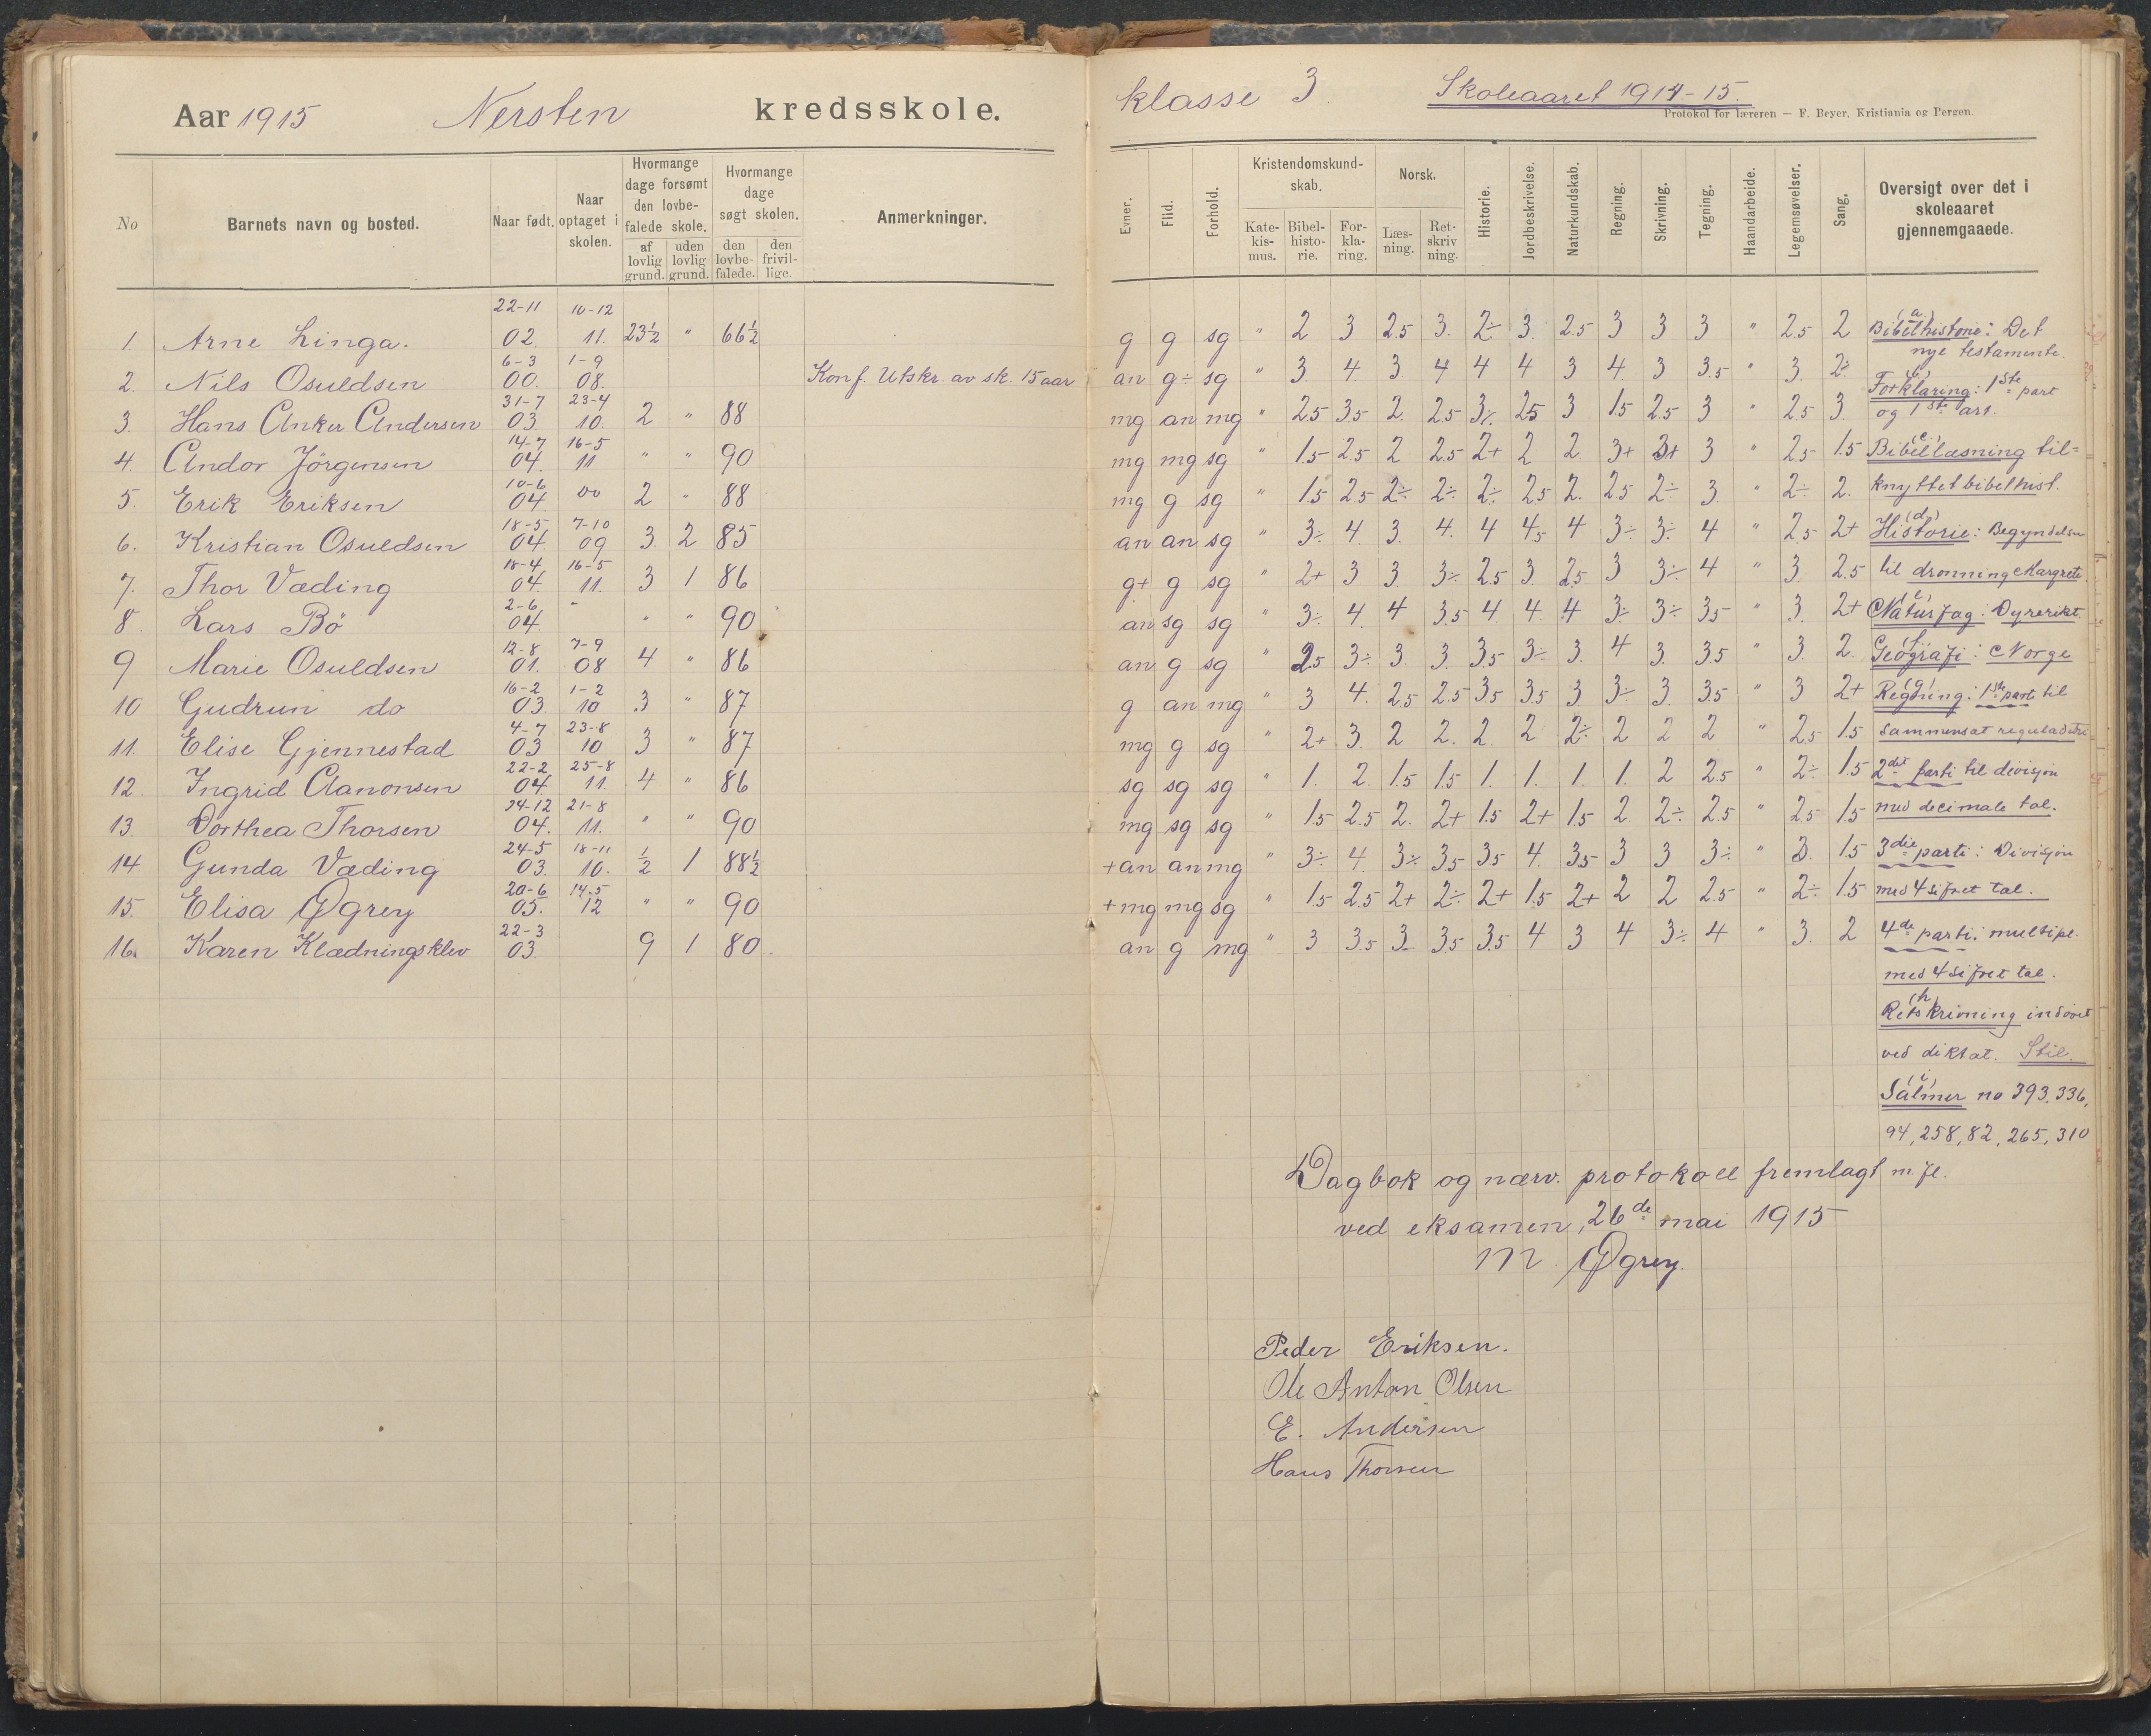 Aar 1915 Nersten kredsskole.
klasse 3. Skoleaaret 1914-15.
Protokol for læreren — F. Beyer, Kristiania og Bergen.
No | Barnets navn og bosted. | Naar født. | Naar optaget i skolen. | Hvormange dage forsømt den lovbefalede skole. af lovlig grund. | uden lovlig grund. | Hvormange dage søgt skolen. den lovbefalede. | den frivillige. | Anmerkninger.
Evner. | Flid. | Forhold. | Kristendomskundskab. Katekismus. | Bibelhistorie. | Forklaring. | Norsk. Læsning. | Retskrivning. | Historie. | Jordbeskrivelse. | Naturkundskab. | Regning. | Skrivning. | Tegning. | Haandarbeide. | Legemsøvelser. | Sang. | Oversigt over det i skoleaaret gjennemgaaede.
1 Arne Linga. 22-11 02. 10-12 11. 23½ " 66½ g g sg " 2 3 2.5 3. 2÷ 3. 2.5 3 3 3 " 2.5 2
2. Nils Osuldsen 6-3 00. 1-9 08. Konf. Utskr. av sk. 15 aar an g÷ sg " 3. 4 3. 4 4 4 3 4 3 3.5 " 3. 2÷
3. Hans Anker Andersen 31-7 03. 23-4 10. 2 " 88 mg an mg " 2.5 3.5 2. 2.5 3÷ 2.5 3 1.5 2.5 3 " 2.5 3.
4. Andor Jörgensen 14-7 04. 16-5 11 " " 90 mg mg sg " 1.5 2.5 2 2.5 2+ 2 2 3+ 3+ 3 " 2.5 1.5
5. Erik Eriksen 10-6 04. 00 2 " 88 mg g sg " 1.5 2.5 2÷ 2÷ 2÷ 2.5 2. 2.5 2÷ 3. " 2÷ 2.
6. Kristian Osuldsen 18-5 04. 7-10 09 3. 2 85 an an sg " 3÷ 4. 3. 4. 4 4.5 4 3÷ 3÷ 4 " 2.5 2+
7. Thor Væding 18-4 04. 16-5 11. 3 1 86 g+ g sg " 2+ 3 3. 3÷ 2.5 3 2.5 3 3÷ 4 " 3. 2.5
8. Lars Bö 2-6 04. " " " 90 an sg sg " 3÷ 4. 4 3.5 4. 4. 4. 3÷ 3÷ 3.5 " 3. 2+
9 Marie Osuldsen 12-8 01. 7-9 08 4 " 86 an g sg " 2.5 3÷ 3 3. 3.5 3÷ 3. 4 3. 3.5 " 3. 2.
10 Gudrun do 16-2 03. 1-2 10 3 " 87 g an mg " 3 4. 2.5 2.5 3.5 3.5 3 3÷ 3. 3.5 " 3 2+
11. Elise Gjennestad 4-7 03 23-8 10 3 " 87 mg g sg " 2+ 3. 2 2. 2. 2 2÷ 2 2 2 " 2.5 1.5
12. Ingrid Aanonsen 22-2 04. 25-8 11. 4 " 86 sg sg sg " 1. 2. 1.5 1.5 1. 1. 1. 1. 2 2.5 " 2÷ 1.5
13. Dorthea Thorsen 24-12 04. 21-8 11. " " 90 mg sg sg " 1.5 2.5 2. 2+ 1.5 2+ 1.5 2 2÷ 2.5 " 2.5 1.5
14. Gunda Væding 24-5 03. 18-11 10. ½ 1 88½ +an an mg " 3÷ 4. 3÷ 3.5 3.5 4. 3.5 3 3 3÷ " 3. 1.5
15. Elisa Øgrey 20-6 05. 14-5 12 " " 90 +mg mg sg " 1.5 2.5 2+ 2÷ 2+ 1.5 2+ 2 2 2.5 " 2÷ 1.5
16. Karen Klædningsklev 22-3 03. 9 1 80. an g mg " 3 3.5 3. 3.5 3.5 4 3 4 3÷ 4 " 3. 2
(a) Bibelhistorie: Det
nye testamente.
(b) Forklaring: 1ste part
og 1ste art.
(c) Bibellæsning til=
knyttet bibelhist.
(d) Historie: Begyndelsen
til dronning Margrete.
(e) Naturfag: Dyreriket.
(f) Geografi: Norge
(g) Regning: 1ste parti til
sammensat reguladetri
2det parti til divisjon
med decimale tal.
3die parti: Divisjon
med 4 sifret tal.
4de parti: multipl.
med 4 sifret tal.
(h) Retskrivning indövet
ved diktat. Stil.
(i) Salmer no 393, 336,
94, 258, 82, 265, 310
Dagbok og nærv. protokoll fremlagt m. fl.
ved eksamen, 26de mai 1915
M. Øgrey.
Peder Eriksen.
Ole Anton Olsen
E. Andersen
Hans Thorsen